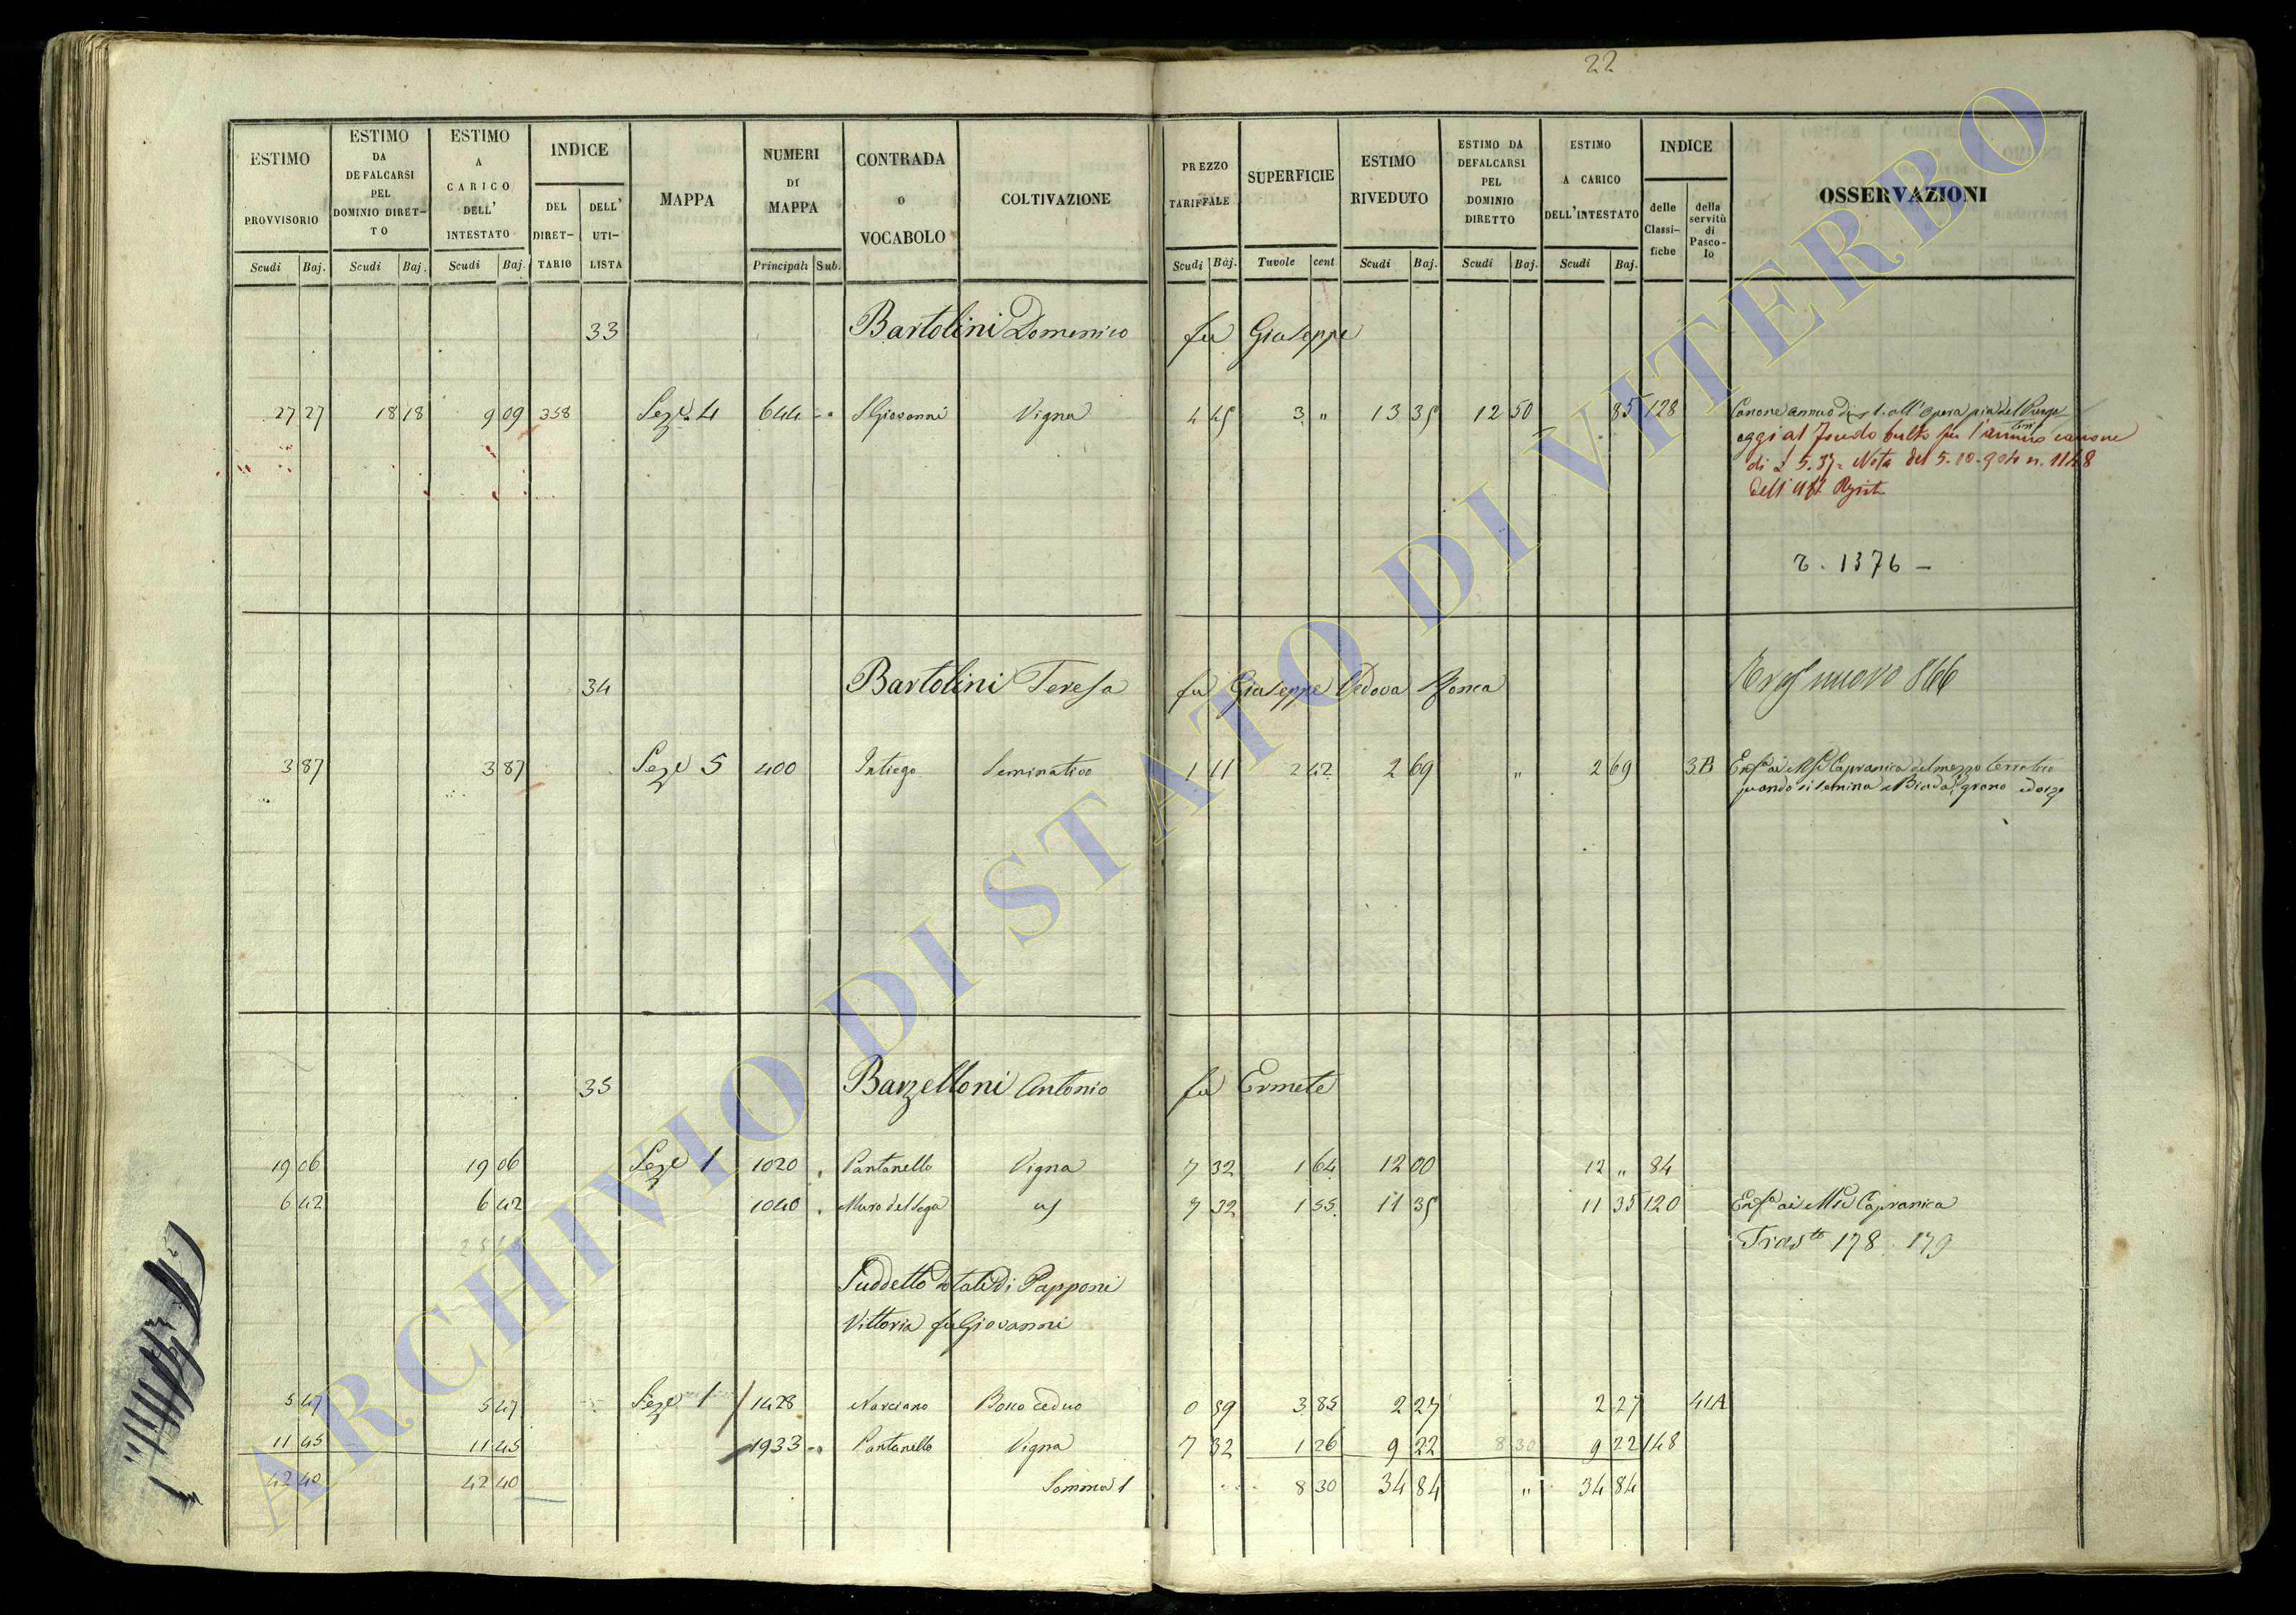 22
ESTIMO PROVVISORIO Scudi Baj.
ESTIMO DA DEFALCARSI PEL DOMINIO DIRET-TO Scudi Baj.
ESTIMO A CARICO DELL' INTESTATO Scudi Baj.
INDICE DEL DIRET-TARIO DELL' UTI-LISTA
MAPPA
NUMERI DI MAPPA Principali Sub.
CONTRADA o VOCABOLO
COLTIVAZIONE
PREZZO TARIFFALE Scudi Baj.
SUPERFICIE Tavole cent
ESTIMO RIVEDUTO Scudi Baj.
ESTIMO DA DEFALCARSI PEL DOMINIO DIRETTO Scudi Baj.
ESTIMO A CARICO DELL'INTESTATO Scudi Baj.
INDICE delle Classi-fiche della servitù di Pasco-lo
OSSERVAZIONI
33 Bartolini Domenico fu Giuseppe
27 27 18 18 9 09 358 Seze 4 644 S Giovanni Vigna 4 45 3 " 13 35 12 50 85 128 Canone annuo di 1. all'Opera pia del Purgo
oggi al Fondo Culto per l'annuo canone
di £ 5.37 Nota del 5.10.904 n. 1148
dell'Uff. Regist
1376 —
34 Bartolini Teresa fu Giuseppe Vedova nuovo 866
3 87 3 87 Seze 5 400 Intiego Seminativo 1 11 2 42 2 69 " 2 69 3B Capranica del mezzo terratico
quando si semina a Biada, grano ed orzo
35 Barzelloni Antonio fu Ermete
19 06 19 06 Seze 1 1020 Pantanello Vigna 7 32 1 64 12 00 12 " 84
6 42 6 42 1040 Muro del Sega 7 32 1 55 11 35 11 35 120 ai Capranica
178 179
Suddetto dotale di Papponi
Vittoria fu Giovanni
5 47 5 47 Seze 1 1428 Narciano Bosco ceduo 0 59 3 85 2 27 2 27 41A
11 45 11 45 1933 Pantanello Vigna 7 32 1 26 9 22 8 30 9 22 148
42 40 42 40 Somma 8 30 34 84 " 34 84
ARCHIVIO DI STATO DI VITERBO